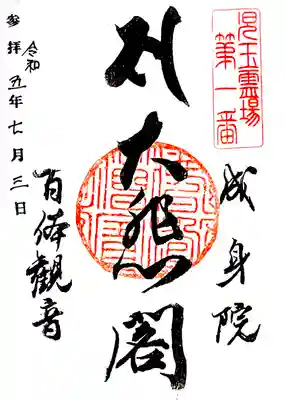 児玉霊場
第一番
成身院
大悲閣
百体觀音
令和五年七月三日
参拝